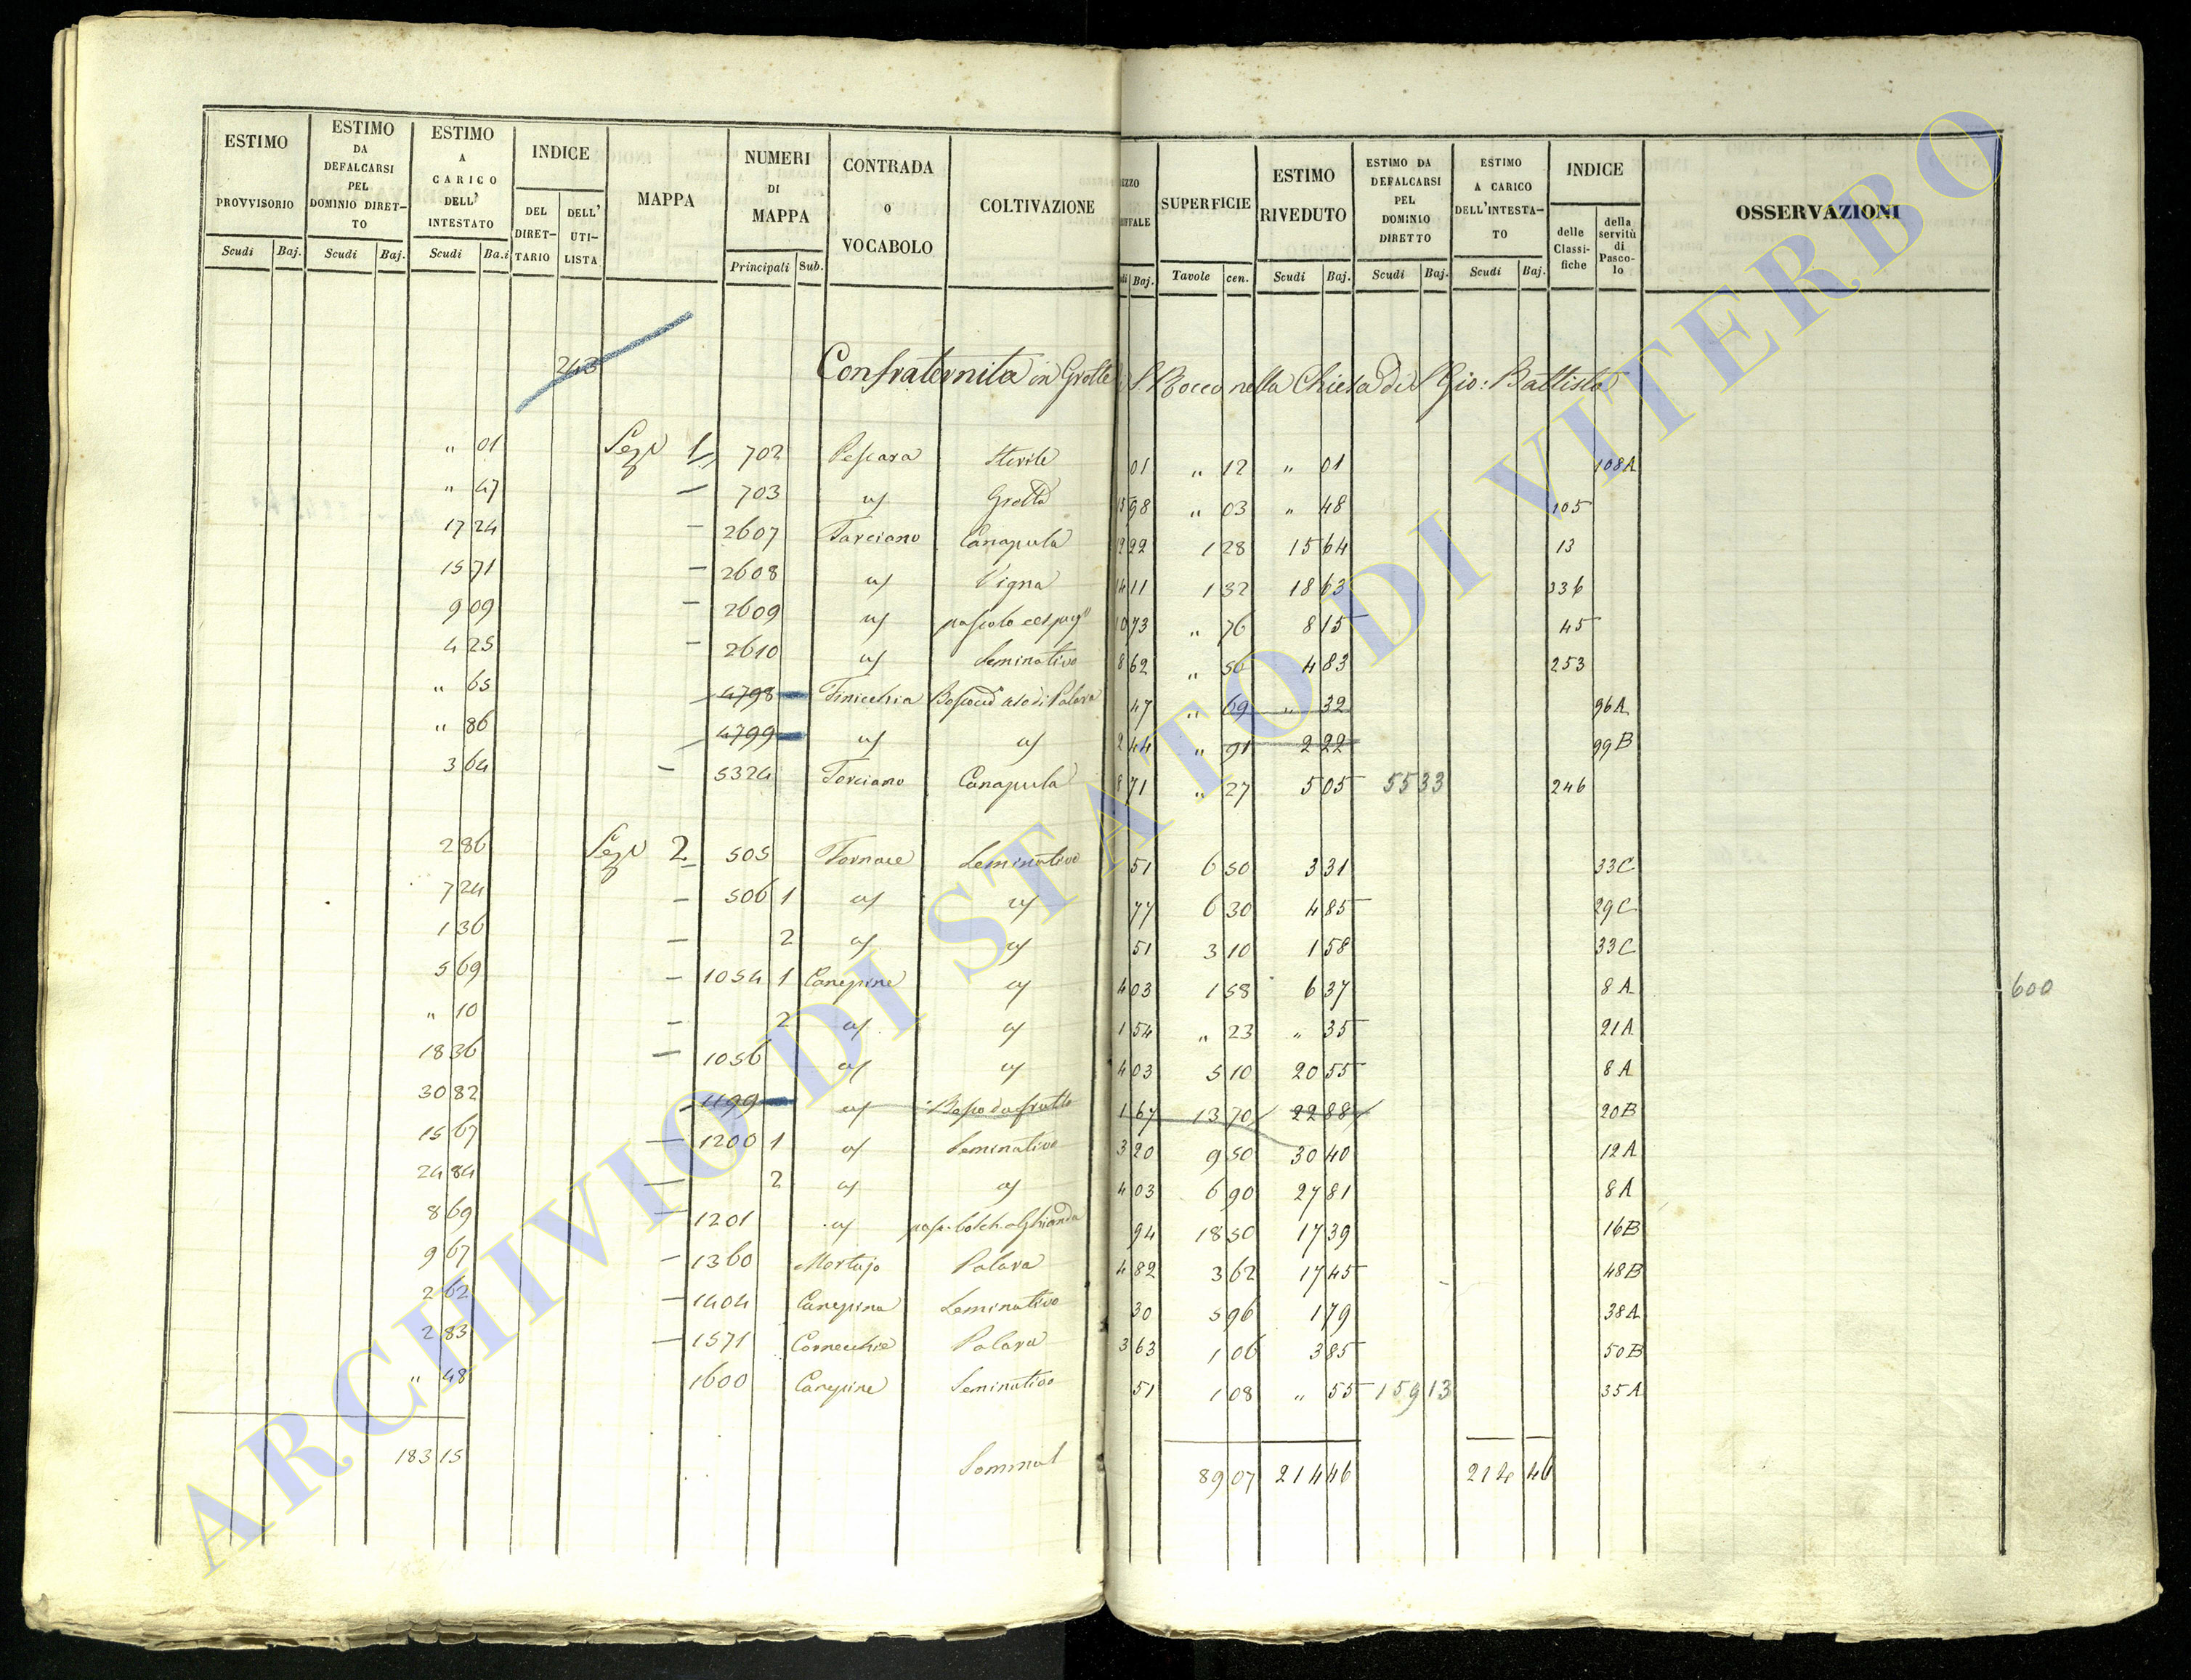 ESTIMO PROVVISORIO Scudi Baj.
ESTIMO DA DEFALCARSI PEL DOMINIO DIRET- TO Scudi Baj.
ESTIMO A CARICO DELL' INTESTATO Scudi Ba.i
INDICE DEL DIRET- TARIO DELL' UTI- LISTA
MAPPA
NUMERI DI MAPPA Principali Sub.
CONTRADA O VOCABOLO
COLTIVAZIONE
Baj.
SUPERFICIE Tavole cen.
ESTIMO RIVEDUTO Scudi Baj.
ESTIMO DA DEFALCARSI PEL DOMINIO DIRETTO Scudi Baj.
ESTIMO A CARICO DELL'INTESTA- TO Scudi Baj.
INDICE delle Classi- fiche della servitù di Pasco- lo
OSSERVAZIONI
243 Confraternita in Grotte S Rocco nella Chiesa di S Gio: Battista
" 01 Sez 1 702 Pescara Sterile 01 " 12 " 01 108A
" 47 – 703 " Grotta 98 " 03 " 48 105
17 24 – 2607 Tarciano Canapula 22 1 28 15 64 13
15 71 – 2608 " Vigna 11 1 32 18 63 336
9 09 – 2609 " pascolo cespug 10 73 " 76 8 15 45
4 25 – 2610 " Seminativo 8 62 " 56 4 83 253
" 65 – 4798 Finicchia 47 " 69 " 32 96A
" 86 – 4799 " " 2 44 " 91 2 22 99B
3 64 – 5324 Torciano Canapula 8 71 " 27 5 05 55 33 246
2 86 Sez 2 505 Fornace Seminativo 51 6 50 3 31 33C
7 24 – 506 1 " " 77 6 30 4 85 29C
1 36 – 2 " " 51 3 10 1 58 33C
5 69 – 1054 1 Canepine " 4 03 1 58 6 37 8A 600
" 10 – 2 " " 1 54 " 23 " 35 21A
18 36 – 1056 " " 4 03 5 10 20 55 8A
30 82 – 1199 " Bosco da frutto 1 67 13 70 22 88 20B
15 67 – 1200 1 " Seminativo 3 20 9 50 30 40 12A
24 84 – 2 " " 4 03 6 90 27 81 8A
8 69 – 1201 " pasc. bosch. Ghianda 94 18 50 17 39 16B
9 67 – 1360 Mortajo Palara 4 82 3 62 17 45 48B
2 62 – 1404 Canepina Seminativo 30 5 96 1 79 38A
2 83 – 1571 Cornecchie Palara 3 63 1 06 3 85 50B
" 48 1600 Canepine Seminativo 51 1 08 " 55 159 13 35A
183 15 Somma 89 07 214 46 214 46
ARCHIVIO DI STATO DI VITERBO